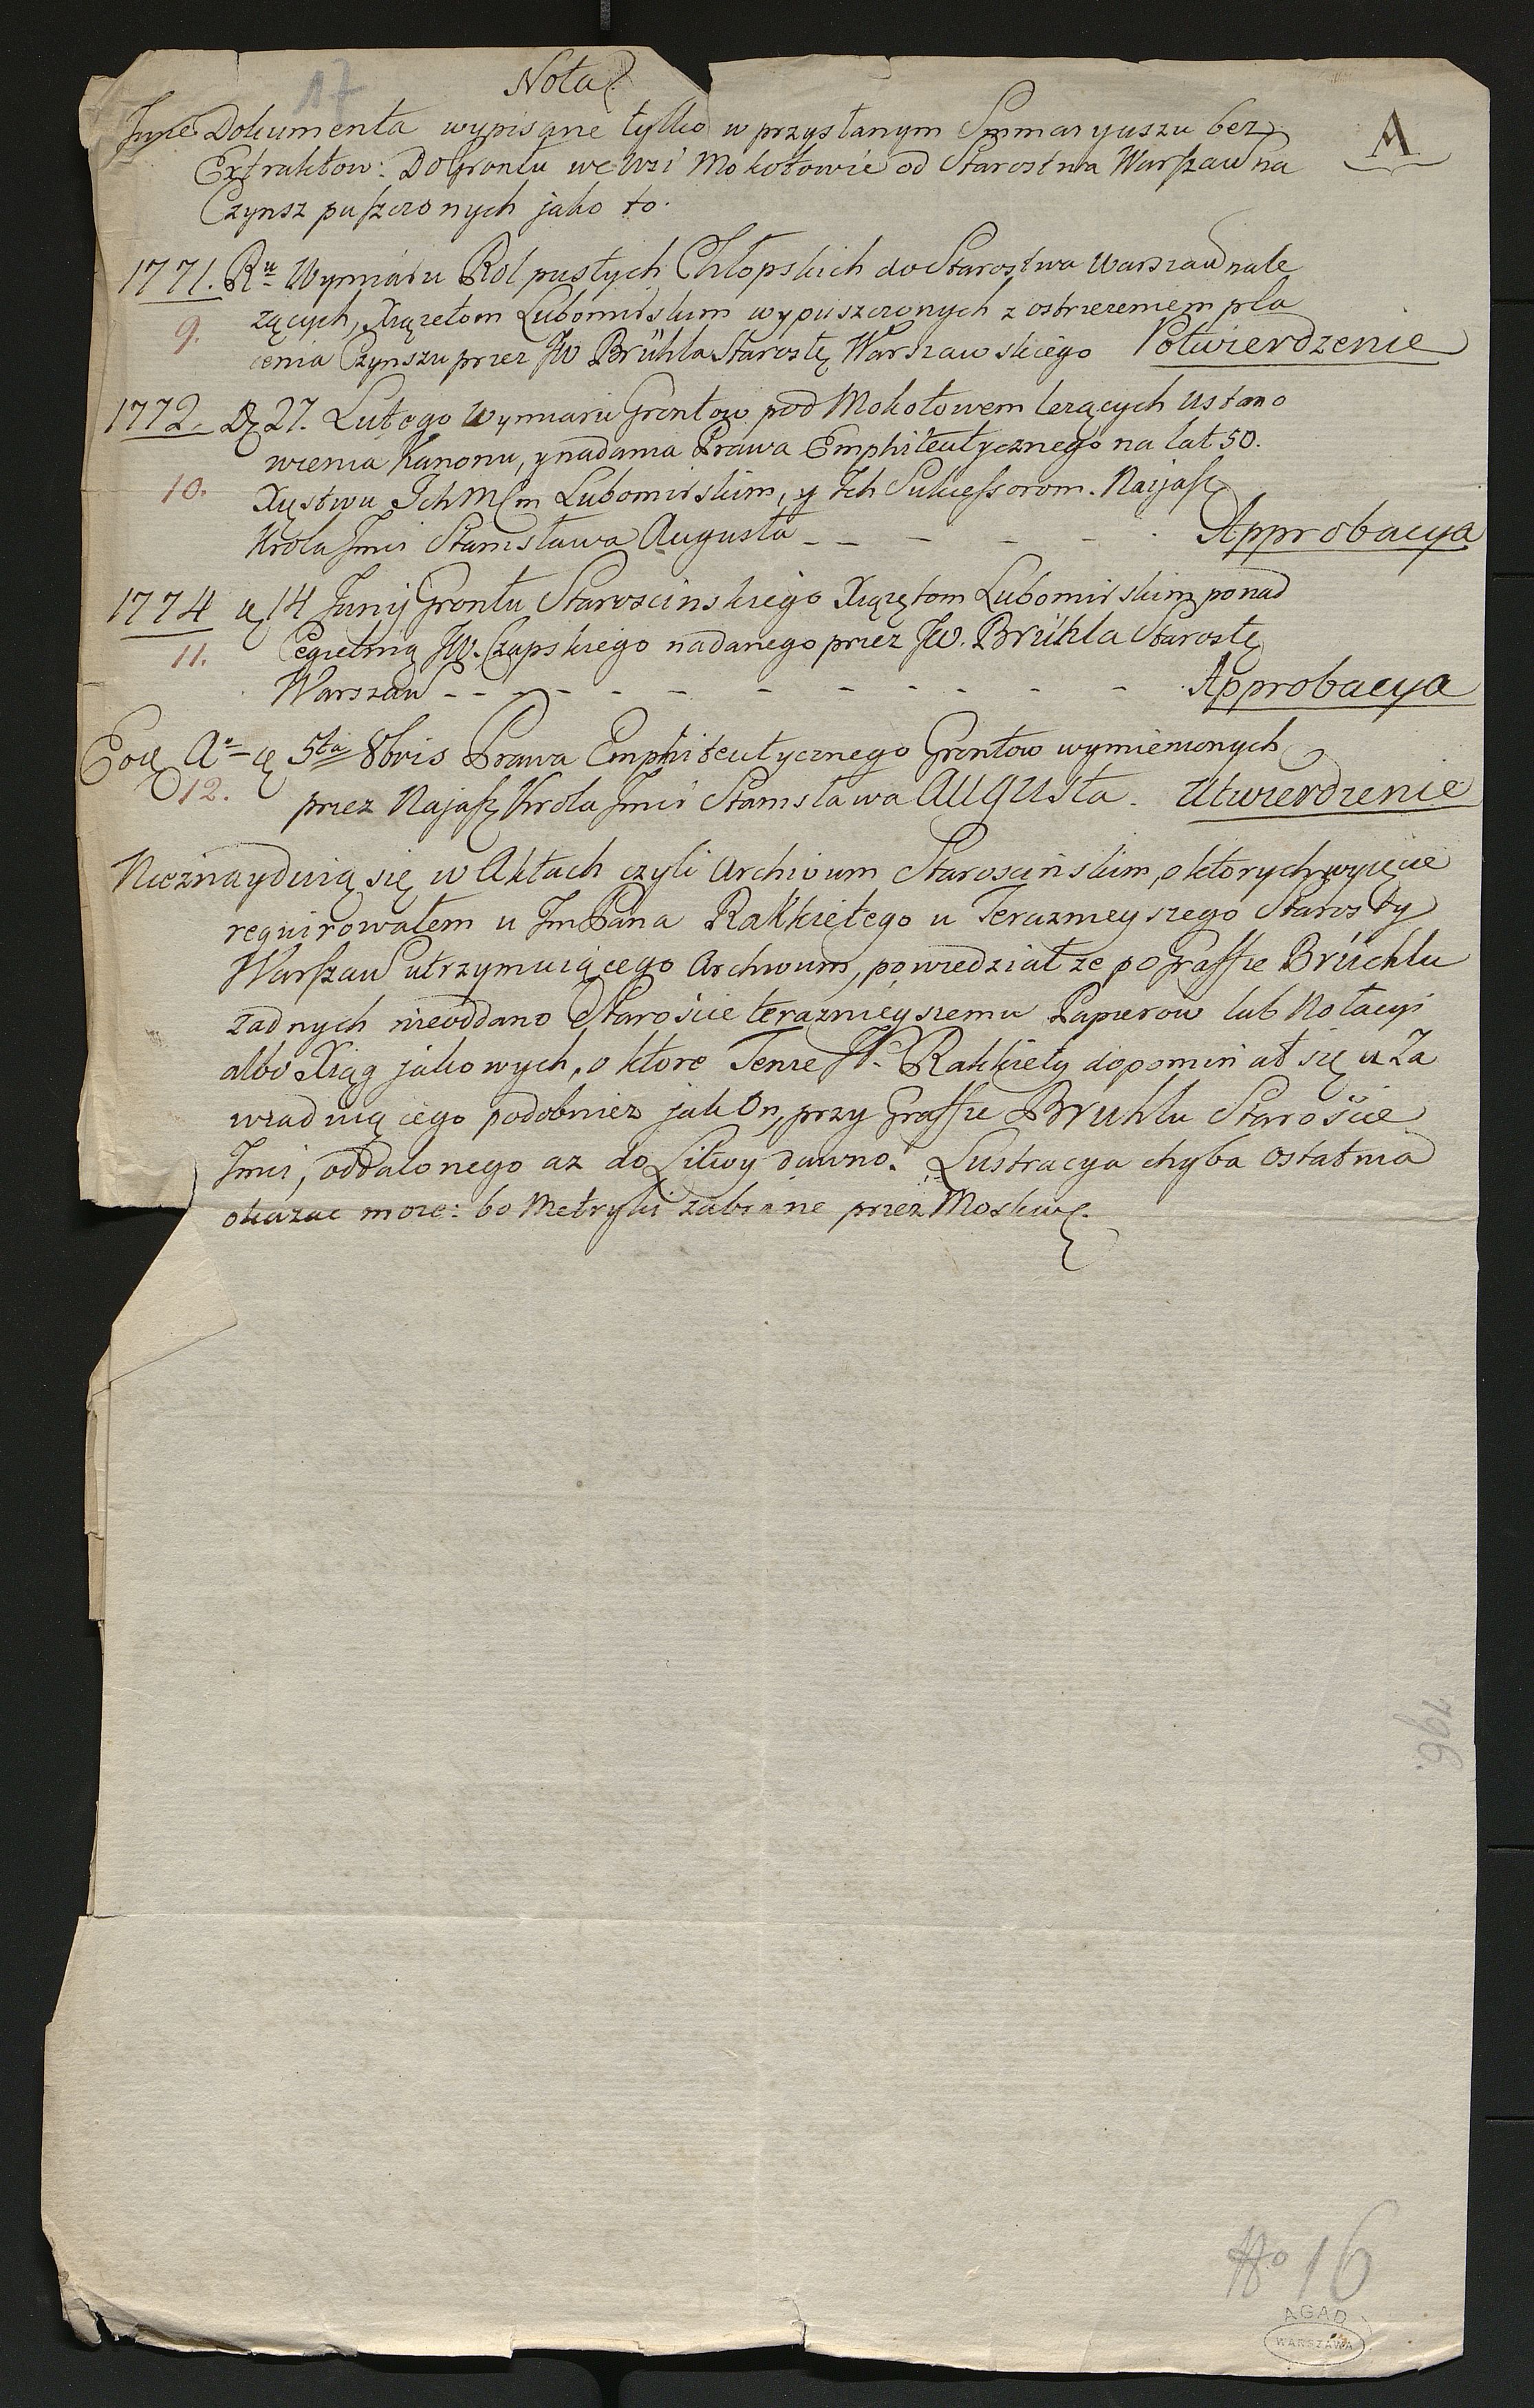 17
Nota
A
Inne Dokumenta wypisane tylko w przysłanym Summaryuszu bez
Extraktow: Do Grontu we Wsi Mokotowie od Starostwa Warszaw na
Czynsz puszczonych jako to.
1771. Ru Wymiaru Rol pustych Chłopskich do Starostwa Warszaw nale
9. zących, Xiązetom Lubomirskim wypuszczonych z ostrzezeniem pła
cenia Czynszu przez JW Brühla Starostę Warszawskiego Potwierdzenie
1772. D 27. Lutego Wymiaru Grontow pod Mokotowem lezących Ustano
wienia Kanonu, y nadania Prawa Emphiteutycznego na lat 50.
10. Xięstwu Ich Mcm Lubomirskim, y Ich Sukcessorom. Naijasz
Krola Jmci Stanisława Augusta - - - - - - Approbacya
1774 d 14 Junij Grontu Staroscinskiego Xiązętom Lubomirskim ponad
11. Cegielnią JW. Czapskiego nadanego przez JW. Brühla Starostę
Warszaw - - - - - - - - - - - Approbacya
Eod Ao d 5ta 8bris Prawa Emphiteutycznego Grontow wymienionych
12. przez Najasz Krola Jmci Stanisława Augusta. Utwierdzenie
Nieznayduią się w Aktach czyli Archivum Staroscińskim, o ktorych wyięcie
requirowałem u JmPana Rakkietego u Teraznieyszego Starosty
Warszaw utrzymuiącego Archivum, powiedział ze po Graffie Brüchlu
zadnych nieoddano Staroście teraznieyszemu Papierow lub Notacyi
albo Xiąg jakowych, o ktore Tenze JP. Rakkiety dopominał się u Za
wiaduiącego podobniez jak On, przy Graffie Bruhlu Staroście
Jmci, oddalonego az do Litwy dawno. Lustracya chyba ostatnia
okazac moze: bo Metryki zabrane przez Moskwę.
796.
No 16
AGAD
WARSZAWA